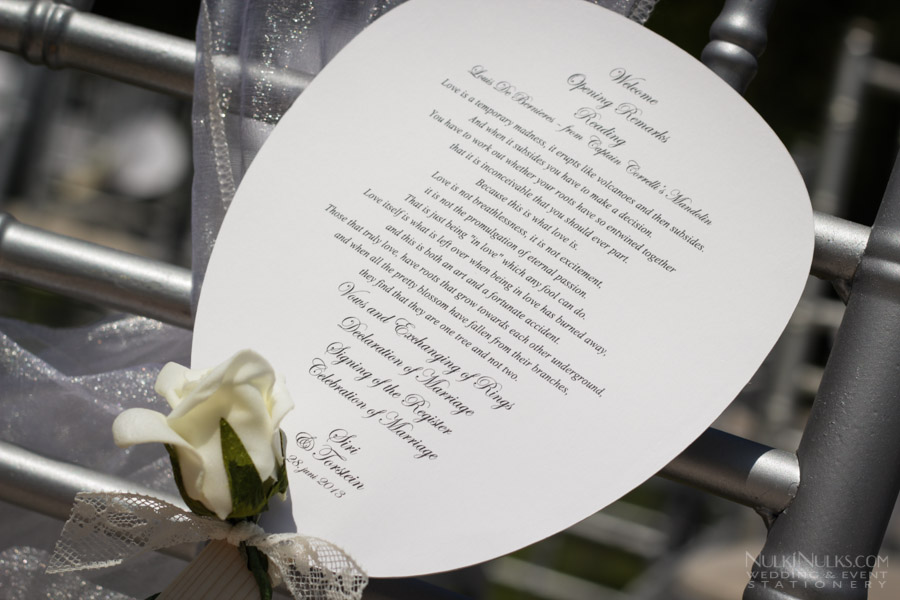 Welcome
Opening Remarks
Reading
Louis De Bernieres - from Captain Correlli's Mandolin
Love is a temporary madness, it erupts like volcanoes and then subsides.
And when it subsides you have to make a decision.
You have to work out whether your roots have so entwined together
that it is inconceivable that you should ever part.
Because this is what love is.
Love is not breathlessness, it is not excitement,
it is not the promulgation of eternal passion.
That is just being "in love" which any fool can do.
Love itself is what is left over when being in love has burned away,
and this is both an art and a fortunate accident.
Those that truly love, have roots that grow towards each other underground,
and when all the pretty blossom have fallen from their branches,
they find that they are one tree and not two.
Vows and Exchanging of Rings
Declaration of Marriage
Signing of the Register
Celebration of Marriage
Siri
& Torstein
28. juni 2013
NulkiNulks.com
Wedding & Event
Stationery